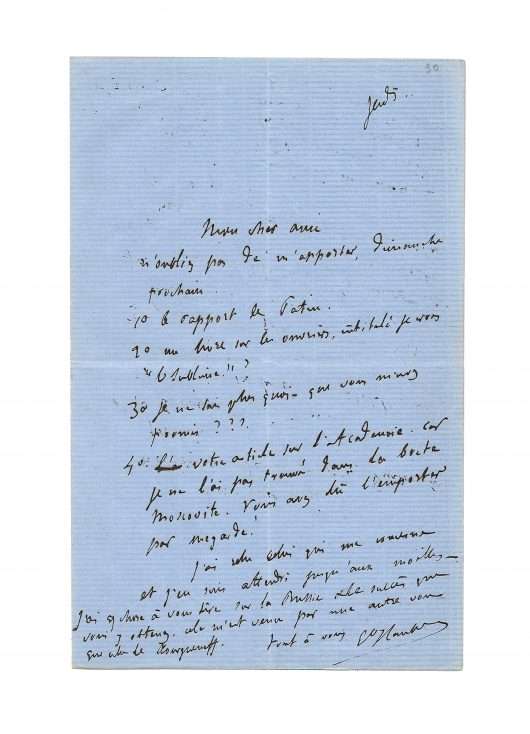 30
Jeudi.
Mon cher ami
n'oubliez pas de m'apporter, dimanche
prochain.
1° le rapport de Patin.
2° un livre sur les ouvriers, intitulé je crois
"le Sublime" ?
3° je ne sais plus quoi - que vous m'avez
promis ???
4° votre article sur l'Académie. car
je ne l'ai pas trouvé dans la boete
Moscovite. Vous avez dû l'emporter
par mégarde !
J'ai relu celui qui me concerne
et j'en suis attendri jusqu'aux moelles -
J'ai qq chose à vous dire sur la Russie & le succès que
vous y obtenez. cela m'est venu par une autre voie
que celle de Tourgueneff.
Tout à vous
Gve Flaubert